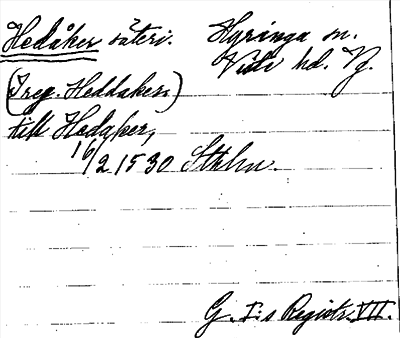 Hedåker säteri. Hyringa sn.
Viste hd. Vg.
(I reg. Heddaker)
till Hedaker,
16/2 1530 Sthlm.
G. I:s Registr. VII.